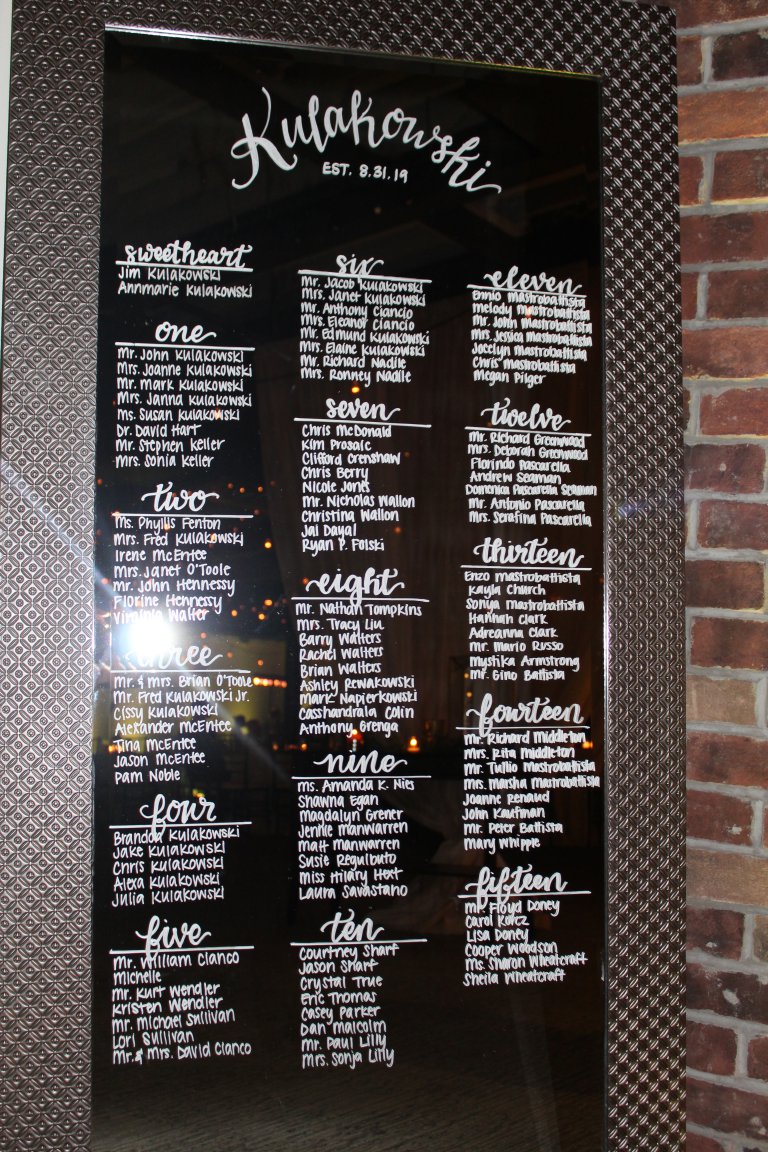 Kulakowski
EST. 8.31.19
sweetheart
Jim Kulakowski
Annmarie Kulakowski
one
Mr. John Kulakowski
Mrs. Joanne Kulakowski
Mr. Mark Kulakowski
Mrs. Janna Kulakowski
Ms. Susan Kulakowski
Dr. David Hart
Mr. Stephen Keller
Mrs. Sonia Keller
two
Ms. Phyllis Fenton
Mrs. Fred Kulakowski
Irene McEntee
Mrs. Janet O'Toole
Mr. John Hennessy
Florine Hennessy
Virginia Walter
three
Mr. & Mrs. Brian O'Toole
Mr. Fred Kulakowski Jr.
Cissy Kulakowski
Alexander McEntee
Tina McEntee
Jason McEntee
Pam Noble
four
Brandon Kulakowski
Jake Kulakowski
Chris Kulakowski
Alexa Kulakowski
Julia Kulakowski
five
Mr. William Cianco
Michelle
Mr. Kurt Wendler
Kristen Wendler
Mr. Michael Sullivan
Lori Sullivan
Mr. & Mrs. David Cianco
six
Mr. Jacob Kulakowski
Mrs. Janet Kulakowski
Mr. Anthony Ciancio
Mrs. Eleanor Ciancio
Mr. Edmund Kulakowski
Mrs. Elaine Kulakowski
Mr. Richard Nadile
Mrs. Ronney Nadile
seven
Chris McDonald
Kim Prosaic
Clifford Crenshaw
Chris Berry
Nicole Jones
Mr. Nicholas Wallon
Christina Wallon
Jai Dayal
Ryan P. Folski
eight
Mr. Nathan Tompkins
Mrs. Tracy Liu
Barry Walters
Rachel Walters
Brian Walters
Ashley Rewakowski
Mark Napierkowski
Casshandrala Colin
Anthony Grenga
nine
Ms. Amanda K. Nies
Shawna Egan
Magdalyn Grener
Jennie Manwarren
Matt Manwarren
Susie Regulbuto
Miss Hilary Hext
Laura Savastano
ten
Courtney Sharf
Jason Sharf
Crystal True
Eric Thomas
Casey Parker
Dan Malcolm
Mr. Paul Lilly
Mrs. Sonja Lilly
eleven
Ennio Mastrobattista
Melody Mastrobattista
Mr. John Mastrobattista
Mrs. Jessica Mastrobattista
Jocelyn Mastrobattista
Chris Mastrobattista
Megan Pilger
twelve
Mr. Richard Greenwood
Mrs. Deborah Greenwood
Florindo Pascarella
Andrew Seaman
Domenica Pascarella Seaman
Mr. Antonio Pascarella
Mrs. Serafina Pascarella
thirteen
Enzo Mastrobattista
Kayla Church
Sonya Mastrobattista
Hannah Clark
Adreanna Clark
Mr. Mario Russo
Mystika Armstrong
Mr. Gino Battista
fourteen
Mr. Richard Middleton
Mrs. Rita Middleton
Mr. Tullio Mastrobattista
Mrs. Marsha Mastrobattista
Joanne Renaud
John Kaufman
Mr. Peter Battista
Mary Whipple
fifteen
Mr. Floyd Doney
Carol Kotcz
Lisa Doney
Cooper Woodson
Ms. Sharon Wheatcraft
Sheila Wheatcraft